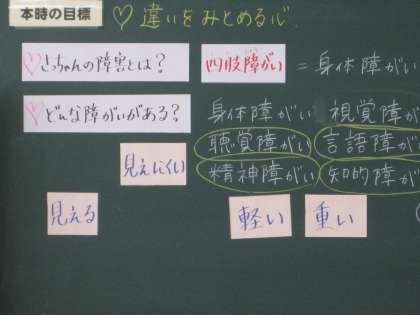 本時の目標 ♡違いをみとめる心
♡さっちゃんの障害とは? 四肢障がい = 身体障がい
♡どんな障がいがある? 身体障がい 視覚障が
聴覚障がい 言語障が
見えにくい 精神障がい 知的障が
見える 軽い 重い